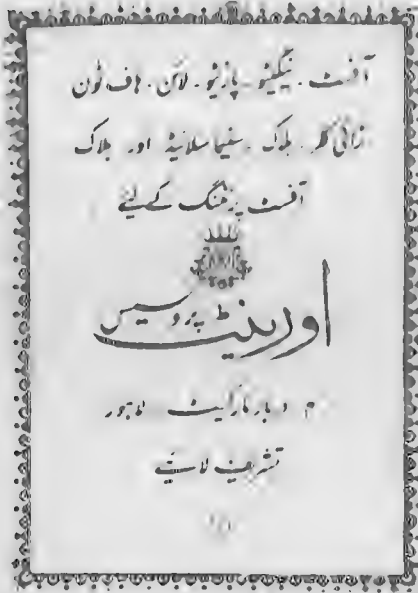 آفسٹ ۔ نیگٹیو ۔ پازیٹو ۔ لائن ۔ ہاف ٹون
ٹرائی کلر ۔ بلاک ۔ سنیما سلائیڈ اور بلاک
آفسٹ پرنٹنگ کے لئے
اورینٹ پروسیس
دربار مارکیٹ لاہور
تشریف لائیے